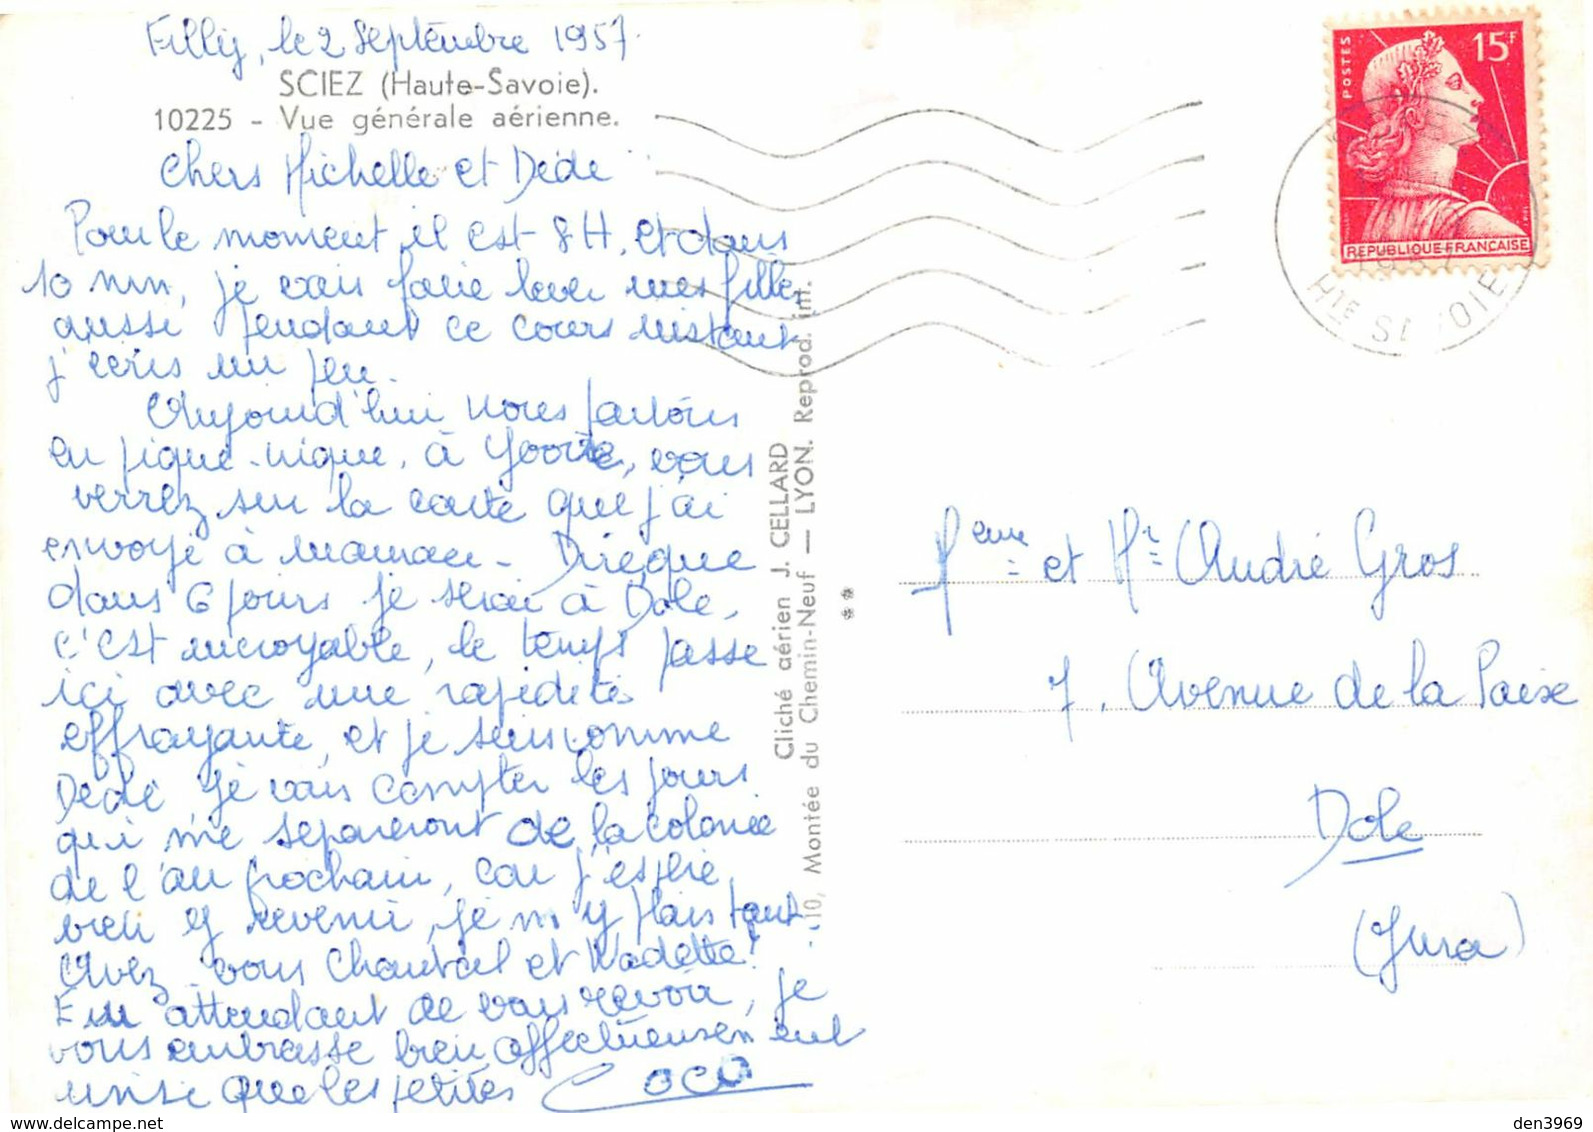 Filly, le 2 Septembre 1957.
SCIEZ (Haute-Savoie).
10225 - Vue générale aérienne.
Chers Michelle et Dédé
Pour le moment il est 8 H, et dans
10 mn, je vais faire lever mes filles
aussi pendant ce cours instant
j'écris un peu.
Aujourd'hui nous partons
en pique-nique, à Yvoire, vous
verrez sur la carte que j'ai
envoyé à maman - Dire que
dans 6 jours je serai à Dole,
c'est incroyable, le temps passe
ici avec une rapidités
effrayante, et je suis comme
Dédé je vais compter les jours
qui me separeront de la colonie
de l'an prochain, car j'espère
bien y revenir, je m'y plais tant.
Avez-vous Chantal et Nadette?
En attendant de vous revoir, je
vous embrasse bien affectueusement
ainsi que les petites COCO
Cliché aérien J. CELLARD
10, Montée du Chemin-Neuf — LYON. Reprod. int.
**
POSTES 15F
REPUBLIQUE FRANÇAISE
HTE SAVOIE
Meme et Mr André Gros
7, Avenue de la Paix
Dole
(Jura)
den3969